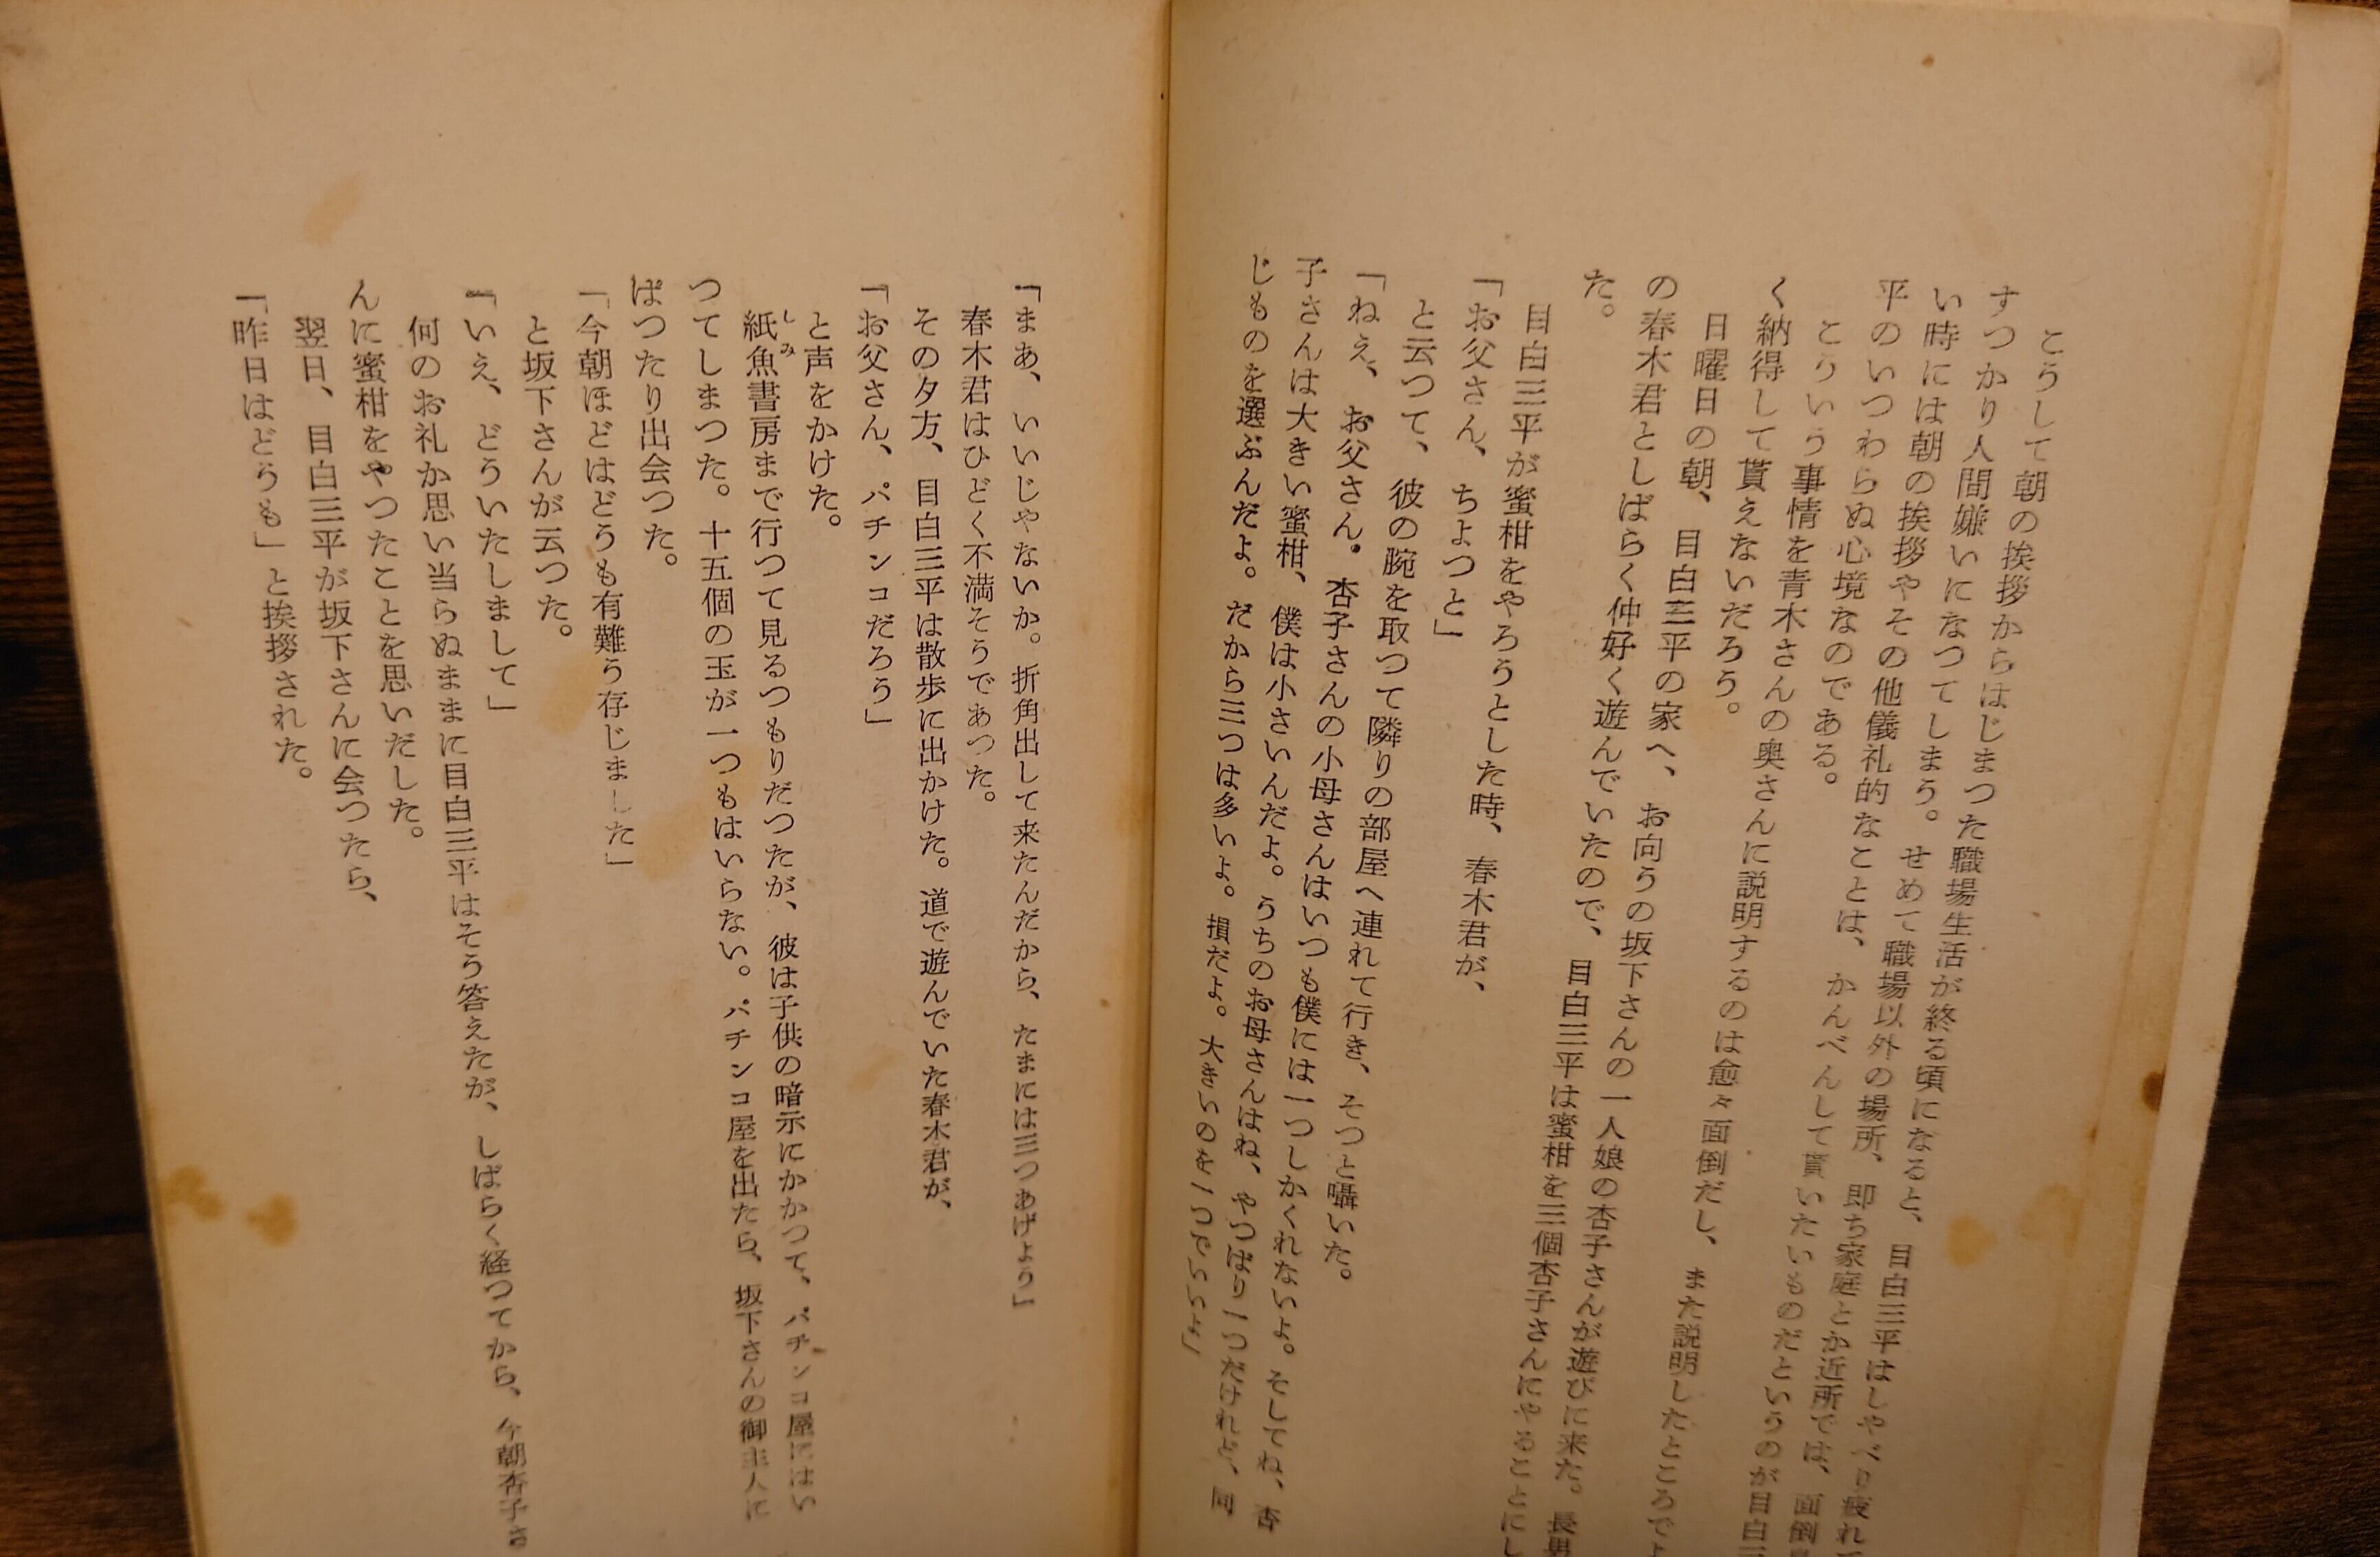 こうして朝の挨拶からはじまつた職場生活が終る頃になると、目白三平はしやべり疲れて
すつかり人間嫌いになつてしまう。せめて職場以外の場所、即ち家庭とか近所では、面倒
い時には朝の挨拶やその他儀礼的なことは、かんべんして貰いたいものだというのが目白三
平のいつわらぬ心境なのである。
こういう事情を青木さんの奥さんに説明するのは愈々面倒だし、また説明したところでよ
く納得して貰えないだろう。
日曜日の朝、目白三平の家へ、お向うの坂下さんの一人娘の杏子さんが遊びに来た。長男
の春木君としばらく仲好く遊んでいたので、目白三平は蜜柑を三個杏子さんにやることにし
た。
目白三平が蜜柑をやろうとした時、春木君が、
「お父さん、ちよつと」
と云つて、彼の腕を取つて隣りの部屋へ連れて行き、そつと囁いた。
「ねえ、お父さん。杏子さんの小母さんはいつも僕には一つしかくれないよ。そしてね、杏
子さんは大きい蜜柑、僕は小さいんだよ。うちのお母さんはね、やつぱり一つだけれど、同
じものを選ぶんだよ。だから三つは多いよ。損だよ。大きいのを一つでいいよ」
「まあ、いいじやないか。折角出して来たんだから、たまには三つあげよう」
春木君はひどく不満そうであつた。
その夕方、目白三平は散歩に出かけた。道で遊んでいた春木君が、
「お父さん、パチンコだろう」
と声をかけた。
紙魚書房まで行つて見るつもりだつたが、彼は子供の暗示にかかつて、パチンコ屋にはい
つてしまつた。十五個の玉が一つもはいらない。パチンコ屋を出たら、坂下さんの御主人に
ぱつたり出会つた。
「今朝ほどはどうも有難う存じました」
と坂下さんが云つた。
「いえ、どういたしまして」
何のお礼か思い当らぬままに目白三平はそう答えたが、しばらく経つてから、今朝杏子さ
んに蜜柑をやつたことを思いだした。
翌日、目白三平が坂下さんに会つたら、
「昨日はどうも」と挨拶された。